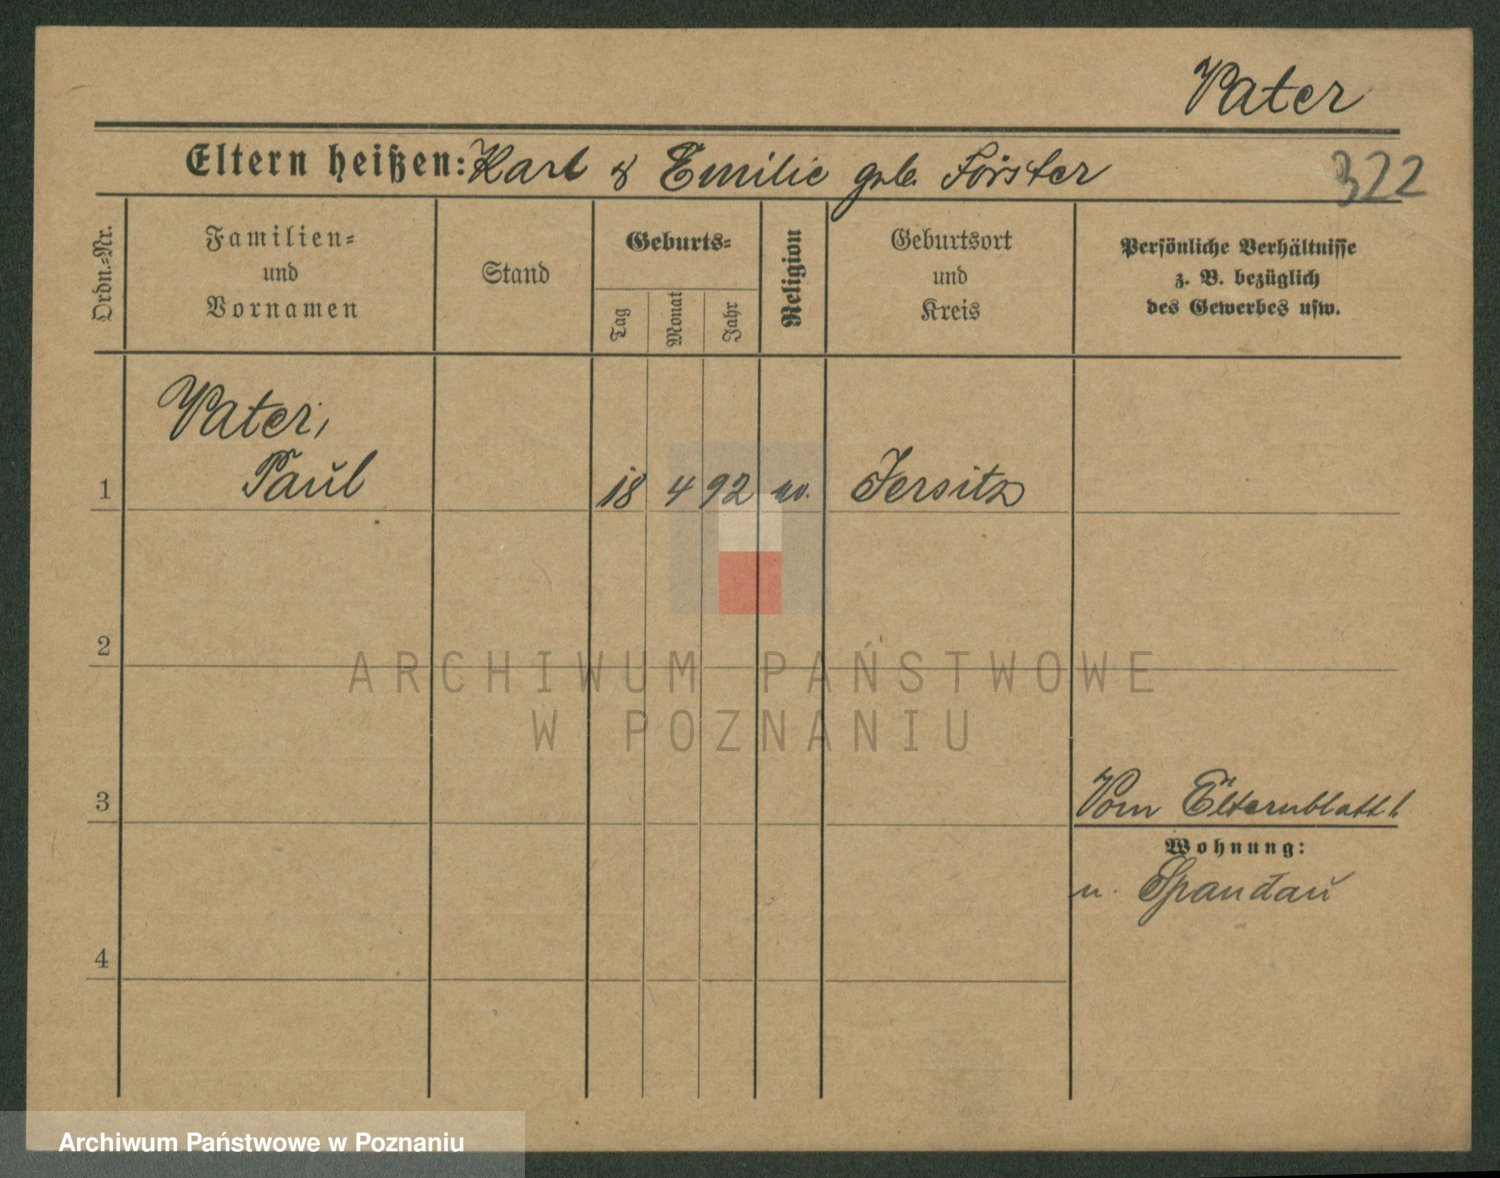 Vater
Eltern heißen: Karl & Emilie geb. Förster
322
Ordn.=Nr.
Familien=
und
Vornamen
Stand
Geburts=
Tag
Monat
Jahr
Religion
Geburtsort
und
Kreis
Persönliche Verhältnisse
z. B. bezüglich
des Gewerbes usw.
Vater,
1 Paul 18 4 92 ev. Jersitz
2
ARCHIWUM PAŃSTWOWE
W POZNANIU
3
Vom Elternblatt
Wohnung:
n. Spandau
4
Archiwum Państwowe w Poznaniu